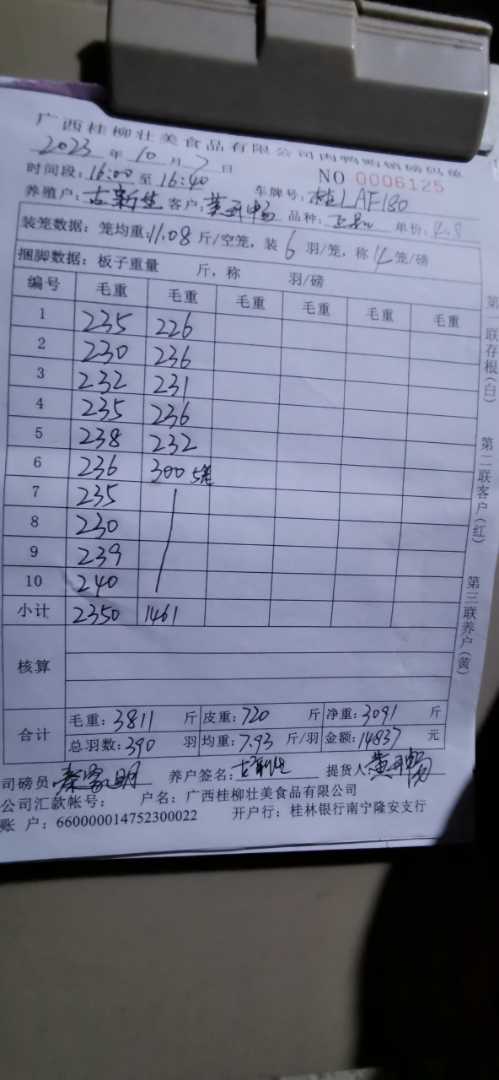 广西桂柳壮美食品有限公司肉鸭购销磅码单
2023 年 10 月 7 日
NO 0006125
时间段: 16:00 至 16:40 车牌号: 桂LAF180
养殖户: 古新生 客户: 品种: 单价: 4.8
装笼数据: 笼均重: 11.08 斤/空笼, 装 6 羽/笼, 称 4 笼/磅
捆脚数据: 板子重量 斤, 称 羽/磅
编号 毛重 毛重 毛重 毛重 毛重 毛重
1 235 226
2 230 236
3 232 231
4 235 236
5 238 232
6 236 300 5笼
7 235
8 230
9 239
10 240
小计 2350 1461
核算
合计 毛重: 3811 斤 皮重: 720 斤 净重: 3091 斤
总羽数: 390 羽 均重: 7.93 斤/羽 金额: 14837 元
司磅员 秦家明 养户签名: 古新生 提货人
公司汇款帐号: 户名: 广西桂柳壮美食品有限公司
账 户: 660000014752300022 开户行: 桂林银行南宁隆安支行
第一联存根(白)
第二联客户(红)
第三联养户(黄)